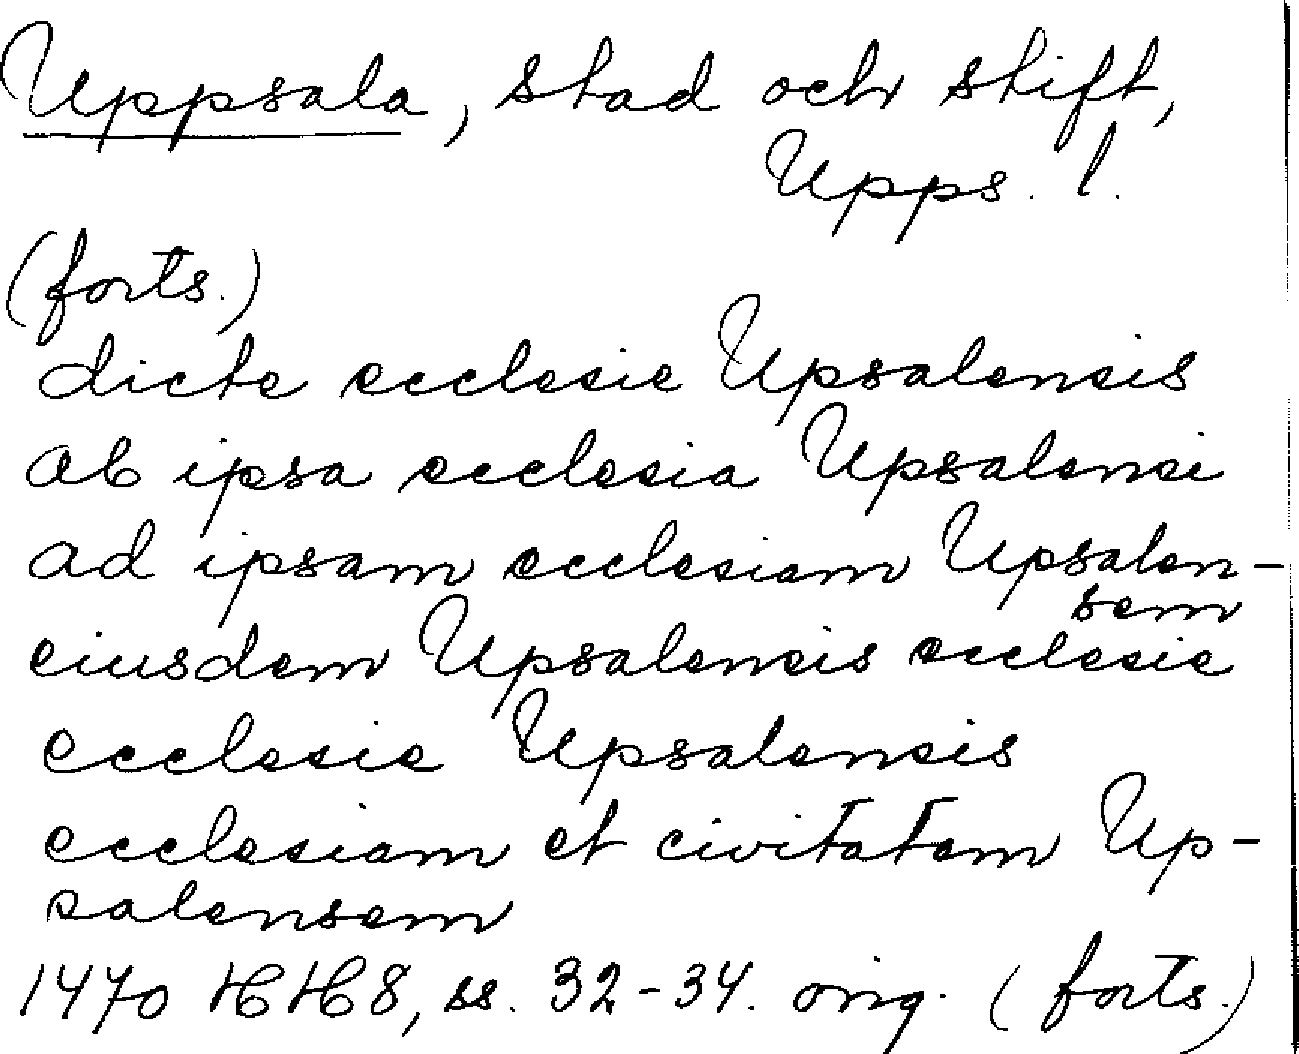 Uppsala, stad och stift,
Upps. l.
(forts.)
dicte ecclesie Upsalensis
ab ipsa ecclesia Upsalensi
ad ipsam ecclesiam Upsalen-
sem
eiusdem Upsalensis ecclesie
ecclesie Upsalensis
ecclesiam et civitatem Up-
salensem
1470 HH 8, ss. 32-34. orig. (forts.)